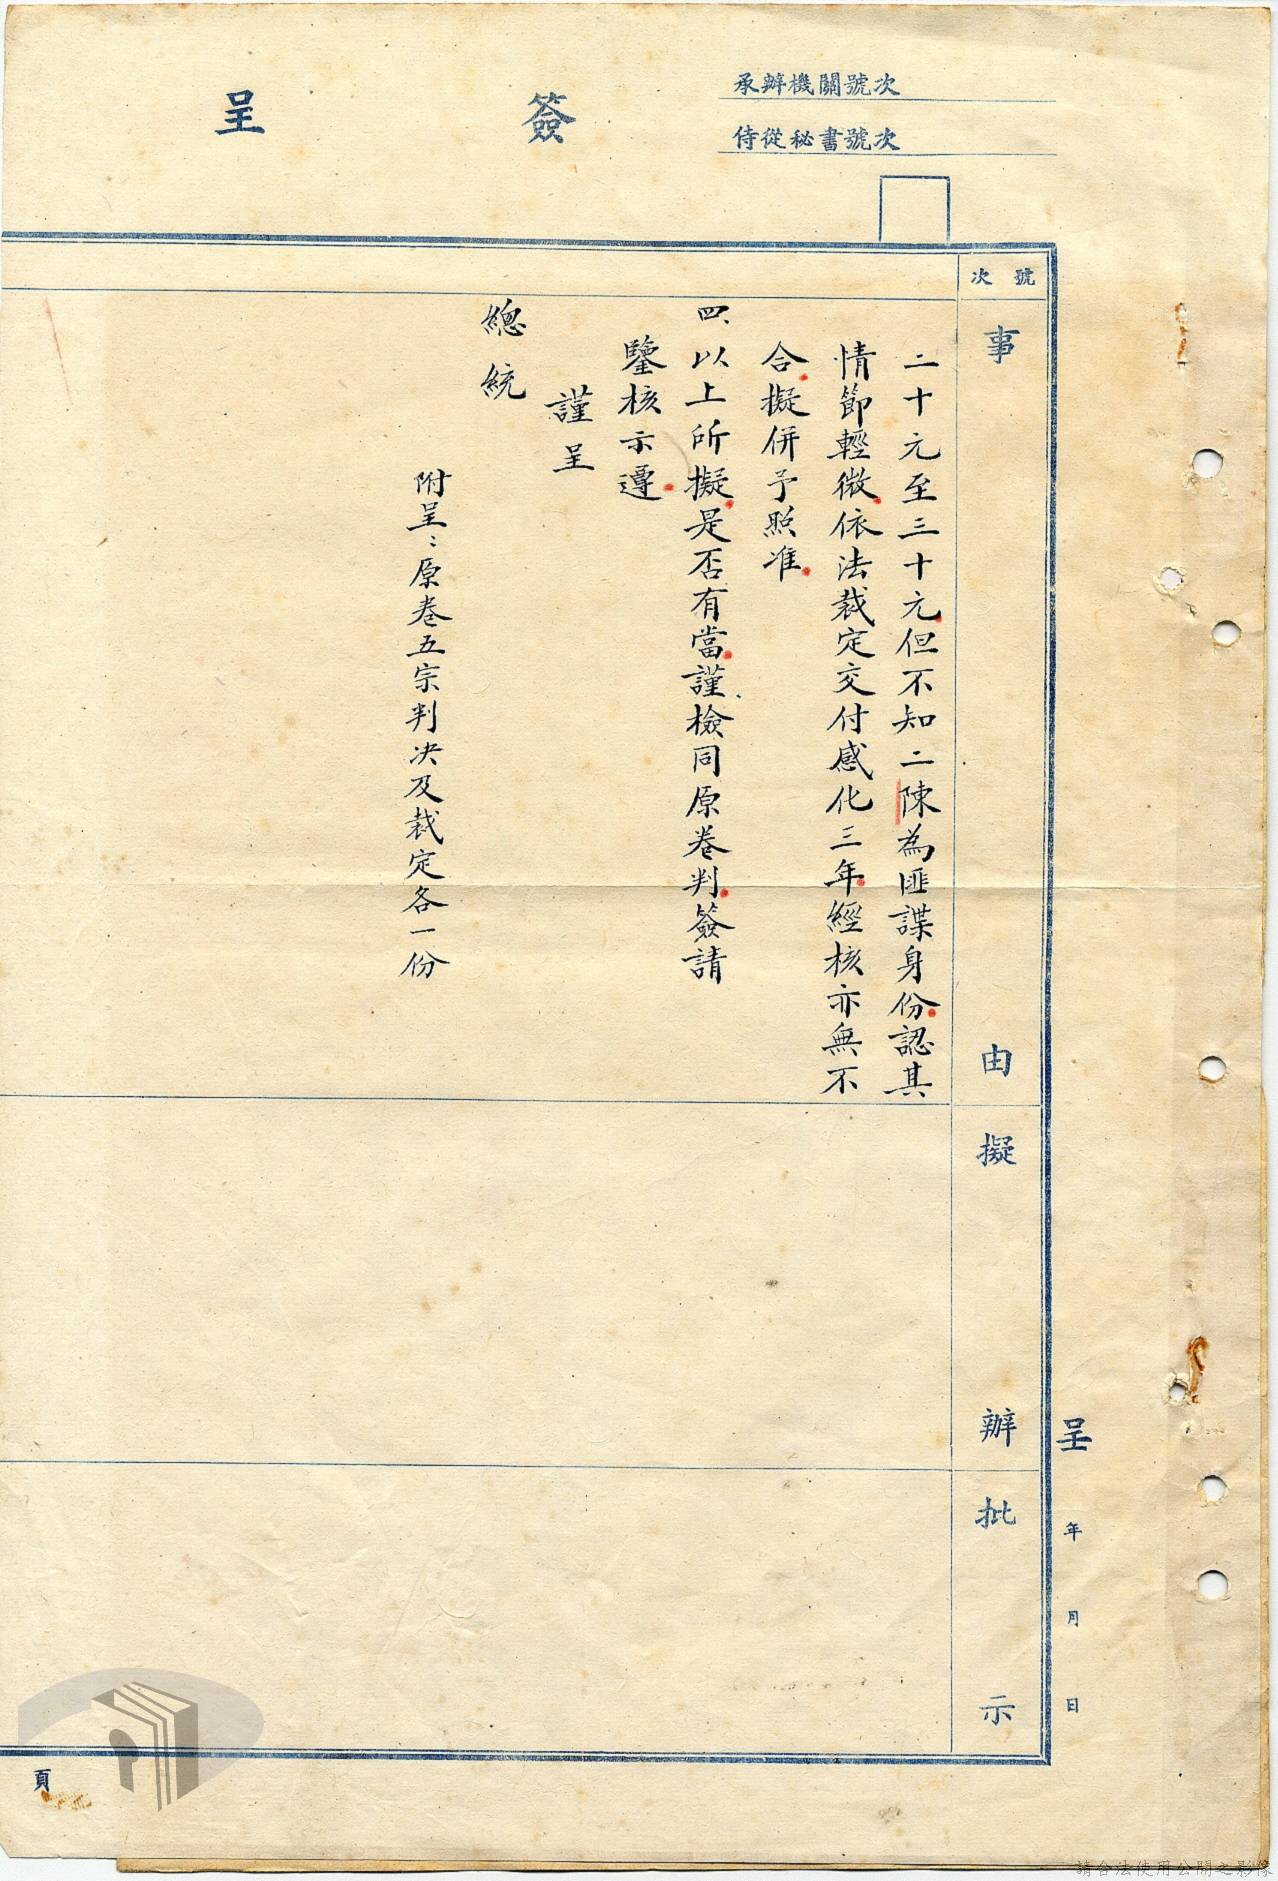 簽呈
承辦機關號次
侍從秘書號次
號次
事由
擬辦
批示
呈 年 月 日
二十元至三十元但不知二陳為匪諜身份認其
情節輕微依法裁定交付感化三年經核亦無不
合擬併予照准
四、以上所擬是否有當謹檢同原卷判簽請
鑒核示遵
謹呈
總統
附呈：原卷五宗判決及裁定各一份
頁
請合法使用公開之影像